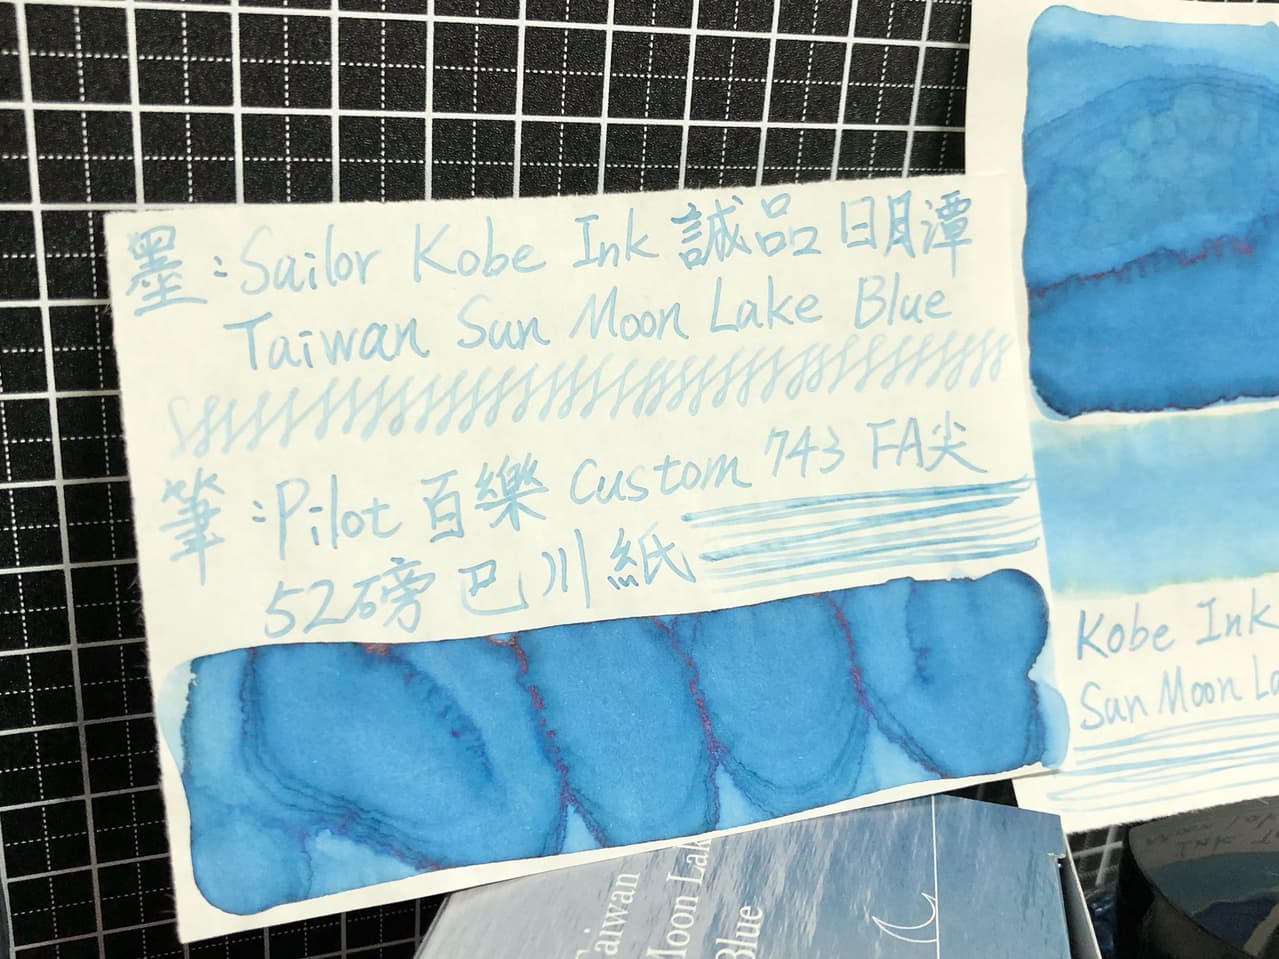 墨：Sailor Kobe Ink 誠品 日月潭
Taiwan Sun Moon Lake Blue
筆：Pilot 百樂 Custom 743 FA尖
52磅 巴川紙
Kobe Ink
Sun Moon La
Taiwan
Moon Lak
Blue